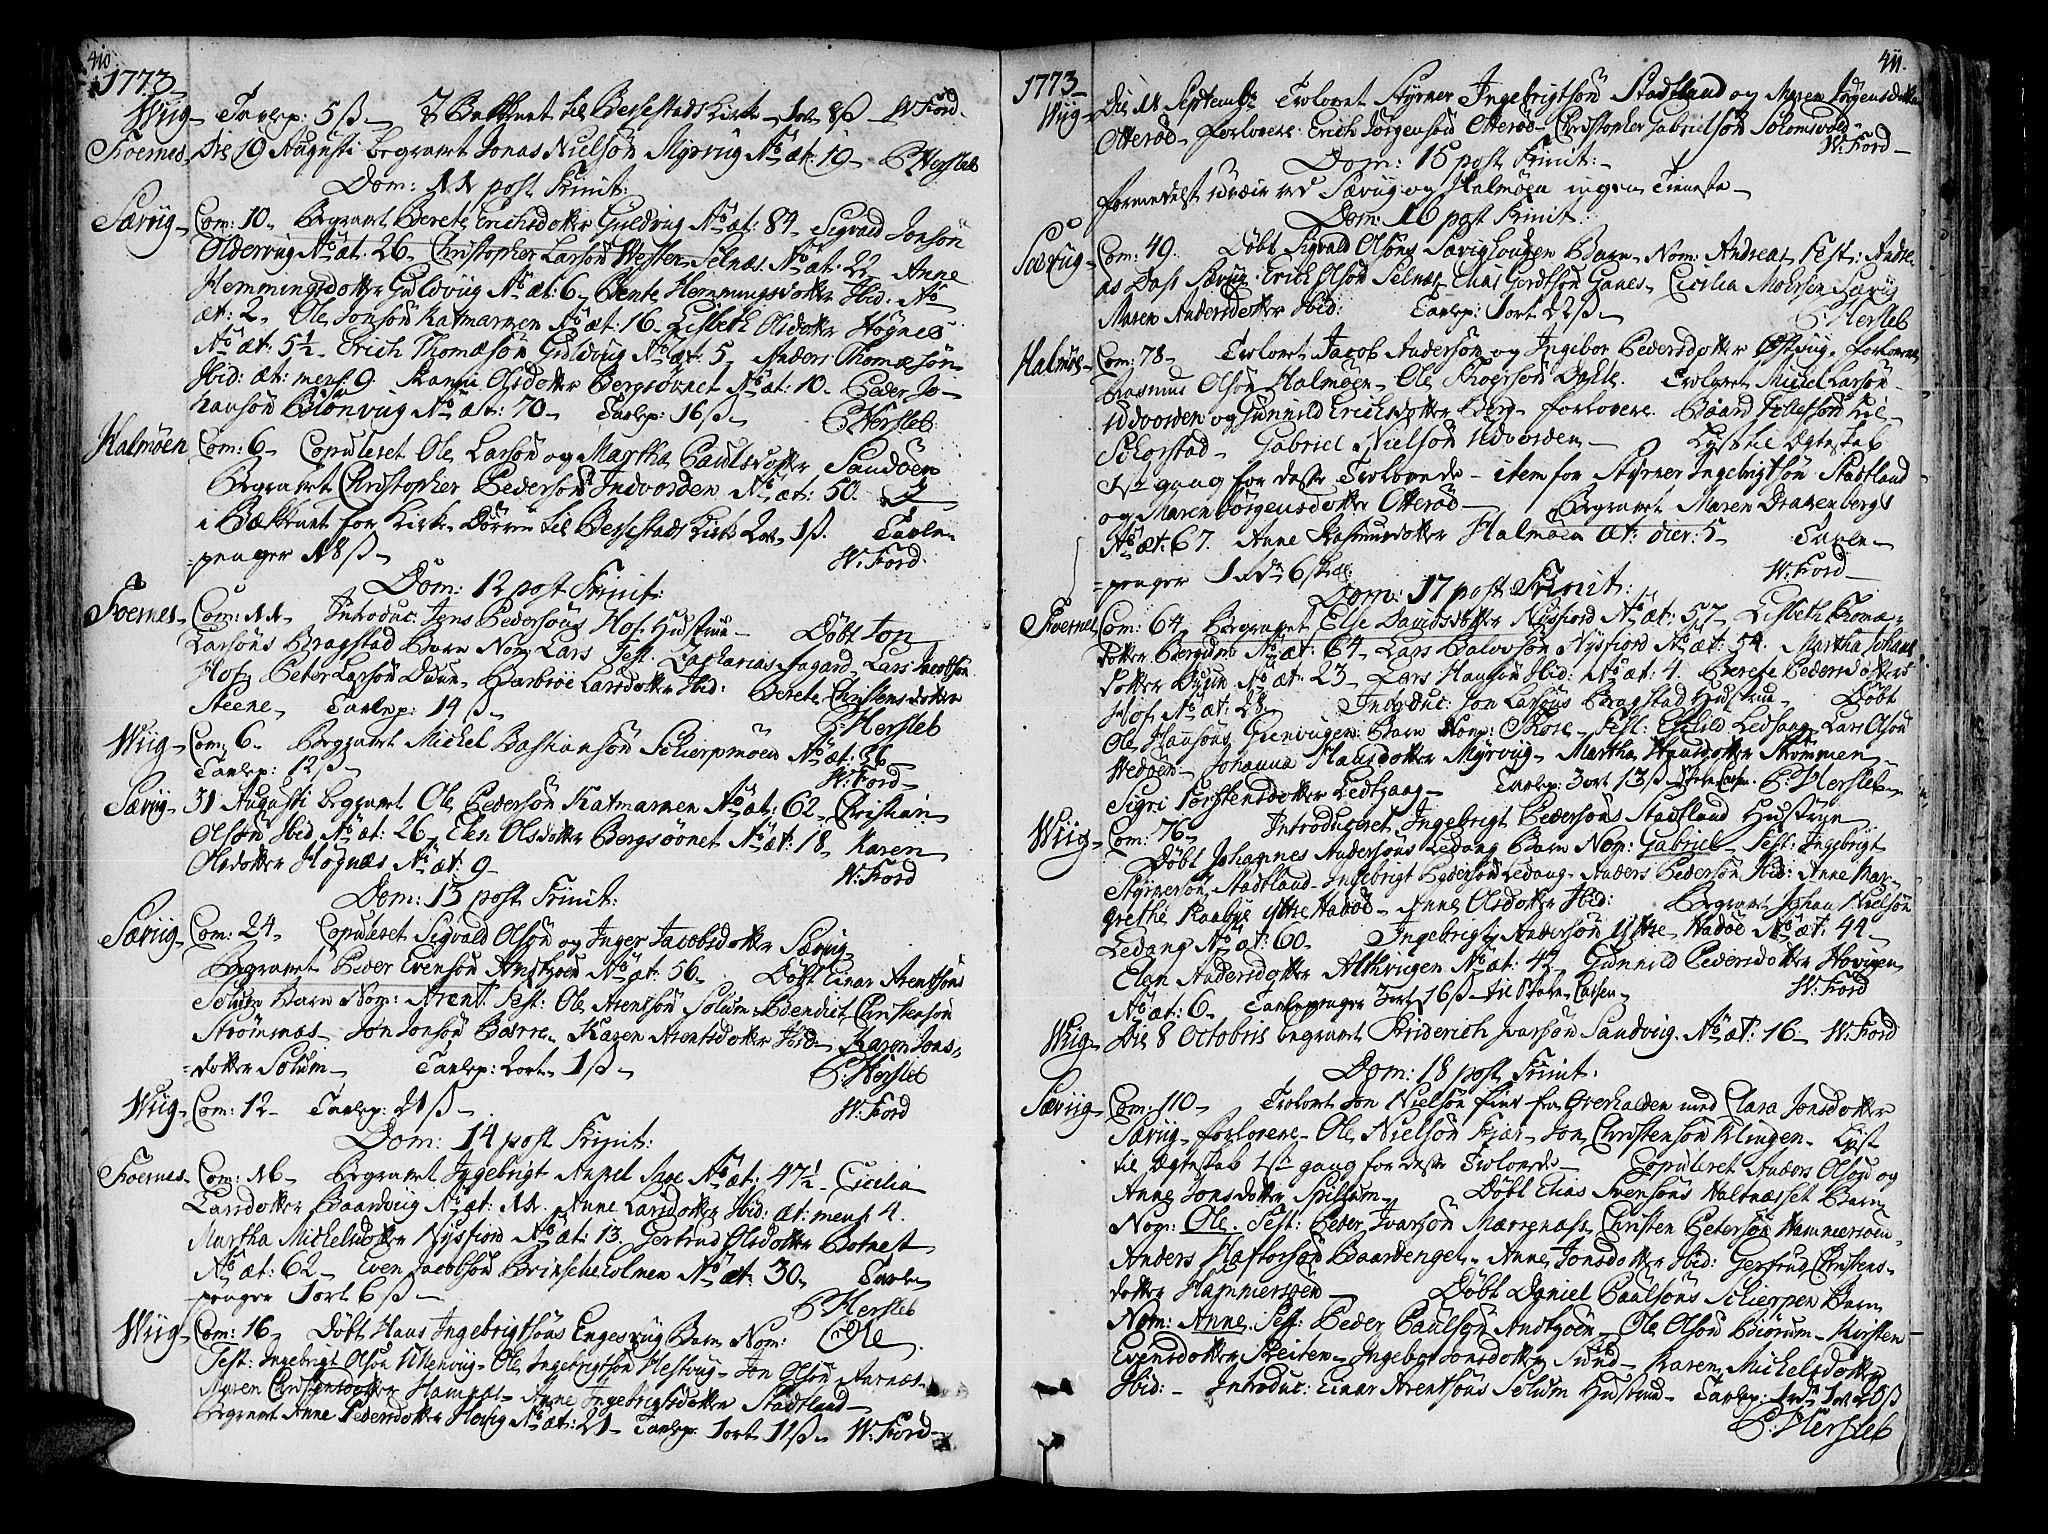 410
1773
Wiig Tavlep: 5 ß til Bersestads Kirke W. Ford
Foernes Die 19 Augusti begravet Jonas Nielsön Myrvig No æt: 19 P. Hersleb
Dom: 11 post Trinit:
Særviig Com: 10 Begravet Berete Erichsdotter Guldviig No æt: 84 Sigvald Jonsön
Oldervüg No æt: 26 Christopher Larsön Wester Selnæs No æt: 22 Anne
Hemmingsdotter Guldvüg No æt: 6 Bente Hemmingsdotter Ibid: No
æt: 2 Ole Jonsön Katmarmen No æt: 16 Lisbeth Olsdotter Høgnes
No æt: 5½ Erich Thomæsön Guldvüg No æt: 5 Anders Thomæsön
Ibid: æt: mens 9. Olsdotter Bergsøvnet No æt: 10 Peder Jo-
hansön Biönvüg No æt: 70 Tavlep: 16 ß P. Hersleb
Halmøen Com: 6 Copuleret Ole Larsön og Martha Paulsdotter Sandöen
Begravet Christopher Pedersön Indvorden No æt: 50.
i for Kirke Dörren til Bersestads Kirke 1 ß. Tavle-
penger 18 ß W. Ford
Dom: 12 post Trinit:
Foernes Com: 11 Introduc: Jens Pedersöns Hof. Hustrue Döbt Jon
Larsöns Bragstad Barn Nom: Lars Test: Zacharias Aagard Lars Jacobsön
Hof Peter Larsön Duun Larsdotter Ibid: Berete Christensdotter
Steene Tavlep: 14 ß P. Hersleb
Wiig Com: 6 Begravet Michel Bastiansön Schierpmöen No æt: 56
Tavlep: 12 ß W. Ford
Særviig 31 Augusti begravet Ole Pedersön Katmarmen No æt: 62 Christian
Olsön Ibid No æt: 26 Elen Olsdotter Bergsøvnet No æt: 18 Karen
Olsdotter Høgnæs No æt: 9 W. Ford
Dom: 13 post Trinit:
Særviig Com: 24 Copuleret Sigvald Olsön og Inger Jacobsdotter Særviig
Begravet Peder Evensön No æt: 56 Döbt Einar Arentsöns
Solum Barn Nom: Arent. Test: Ole Arentsön Solum Bendict Christensön
Strömsnæs Jon Jonsön Bærre Karen Arentsdotter Ibid Karen Jons-
dotter Solum Tavlep: 2ort 1 ß P. Hersleb
Wiig Com: 12 Tavlep: 21 ß W. Ford
Dom: 14 post Trinit:
Foernes Com: 16 Begravet Ingebrigt No æt: 47½ Cicilia
Larsdotter Baardviig No æt: 11. Anne Larsdotter Ibid: æt: mens 4.
Martha Michelsdotter Nysfiord No æt: 13. Gertrud Olsdotter Botnest
No æt: 62 Even Jacobsön Brinscheholmen No æt: 30 Tavle-
penger 1 ort 6 ß P. Hersleb
Wiig Com: 16 Döbt Hans Ingebrigtsöns Engesvüg Barn Nom: Ole
Test: Ingebrigt Olsön Ole Ingebrigtsön Hestvug Jon Olsön Aarnæs
Maren Christensdotter Hamnæs Anne Ingebrigtsdotter Stadtland
Begravet Anne Pedersdotter No æt: 21 Tavlep: 1 ort 11 ß W. Ford
411.
1773
Wiig Die 11 Septembr Trolovet Styrner Ingebrigtsön Stadtland og Maren Jörgensdotter
Otteröd forlovere: Erich Jörgensön Otteröd Christopher Gabrielsön Solomsvold
W. Ford
Dom: 15 post Trinit:
formedelst ved Særviig og Halmöen ingen Tieneste
Dom: 16 post Trinit:
Særviig Com: 49. Döbt Sigvald Olsöns Barn Nom: Andreas Test: Andre-
as Dass Særviig Erich Olsön Selnæs Elias Gerdtsön Ganes Cicilia Særviig
Maren Andersdotter Ibid: Tavlep: 1 ort 22 ß P. Hersleb
Halmöe Com: 78 Trolovet Jacob Andersön og Ingebor Pedersdotter forlovere
Rasmus Olsön Halmöen Ole Dahle. Trolovet Michel Larsön
Udvorden og Gunnild Erichsdotter Berg forlovere. Baard
Gabriel Nielsön Udvorden Lyst til Ægteskab
1ste gang for deste Trolovede item for Styrner Ingebrigtsön Stadtland
og Maren Jörgensdotter Otteröd Begravet Maren Drakenbergs
No æt: 67. Anne Rasmusdotter Halmöen æt: dier: 5 Tavle-
penger W. Ford
Dom: 17 post Trinit:
Foernes Com: 64 Begravet Else Davidsdotter Nysfiord No æt: 57 Lisbeth Thomæ-
dotter No æt: 64 Lars Nysfiord No æt: 54. Martha Johans
dotter Duun No æt: 23 Lars Hansön Ibid: No æt: 4. Berete Pedersdotter
Hof No æt: 28 Introduc: Jon Larsöns Bragstad Hustrue Döbt
Ole Hansöns Barn Nom: Test: Lars Olsön
Johanna Hansdotter Myrvüg Martha Hansdotter
Sigri Torstensdotter Ledtgaag Tavlep: 3 ort 13 ß P. Hersleb
Wiig Com: 76 Introduceret Ingebrigt Pedersöns Stadland Hustrue
Döbt Johannes Andersöns Ledang Barn Nom: Gabriel Test: Ingebrigt
Styrnersön Stadtland Ingebrigt Pedersön Ledang Anders Pedersön Ibid: Anne Mar-
grethe Anne Olsdotter Ibid: Begravet Johan Nielsön
Ledang No æt: 60. Ingebrigt Andersön No æt: 44
Elen Andersdotter No æt: 47 Gunnild Pedersdotter
No æt: 6 Tavlepenger 3 ort 16 ß W. Ford
Wiig Die 8 Octobris begravet Friderich Ivarsön Sandvüg. No æt: 16 W. Ford
Dom: 18 post Trinit:
Særviig Com: 110 Trolovet Jon Nielsön fra Overhalden med Clara Jonsdotter
Særviig forlovere Ole Nielsön Jon Christensön Klingen Lyst
til Ægteskab 1ste gang for deste Trolovede Copuleret Anders Olsön og
Anne Jonsdotter Spillum Döbt Elias Svensöns Barn
Nom: Ole. Test: Peder Ivarsön Christen Petersön Hammersöen
Anders Haftorsön Baardenget Anne Jonsdotter Ibid: Gertrud Christens-
dotter Hammersöen Döbt Daniel Paulsöns Schierpen Barn
Nom: Anne Test: Peder Paulsön Ole Olsön Biörum Kirsten
Evensdotter Ingebor Jonsdotter Sund Karen Michelsdotter
Ibid: Introduc: Einar Arentsöns Solum Hustrue Tavlep:
P. Hersleb